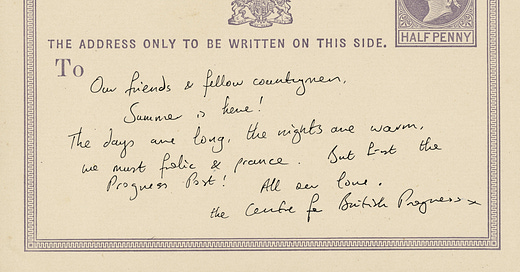 HALF PENNY
THE ADDRESS ONLY TO BE WRITTEN ON THIS SIDE.
To
Our friends & fellow countrymen,
Summer is here!
The days are long, the nights are warm,
we must frolic & prance. But first the
Progress Post! All our love,
the Centre for British Progress x